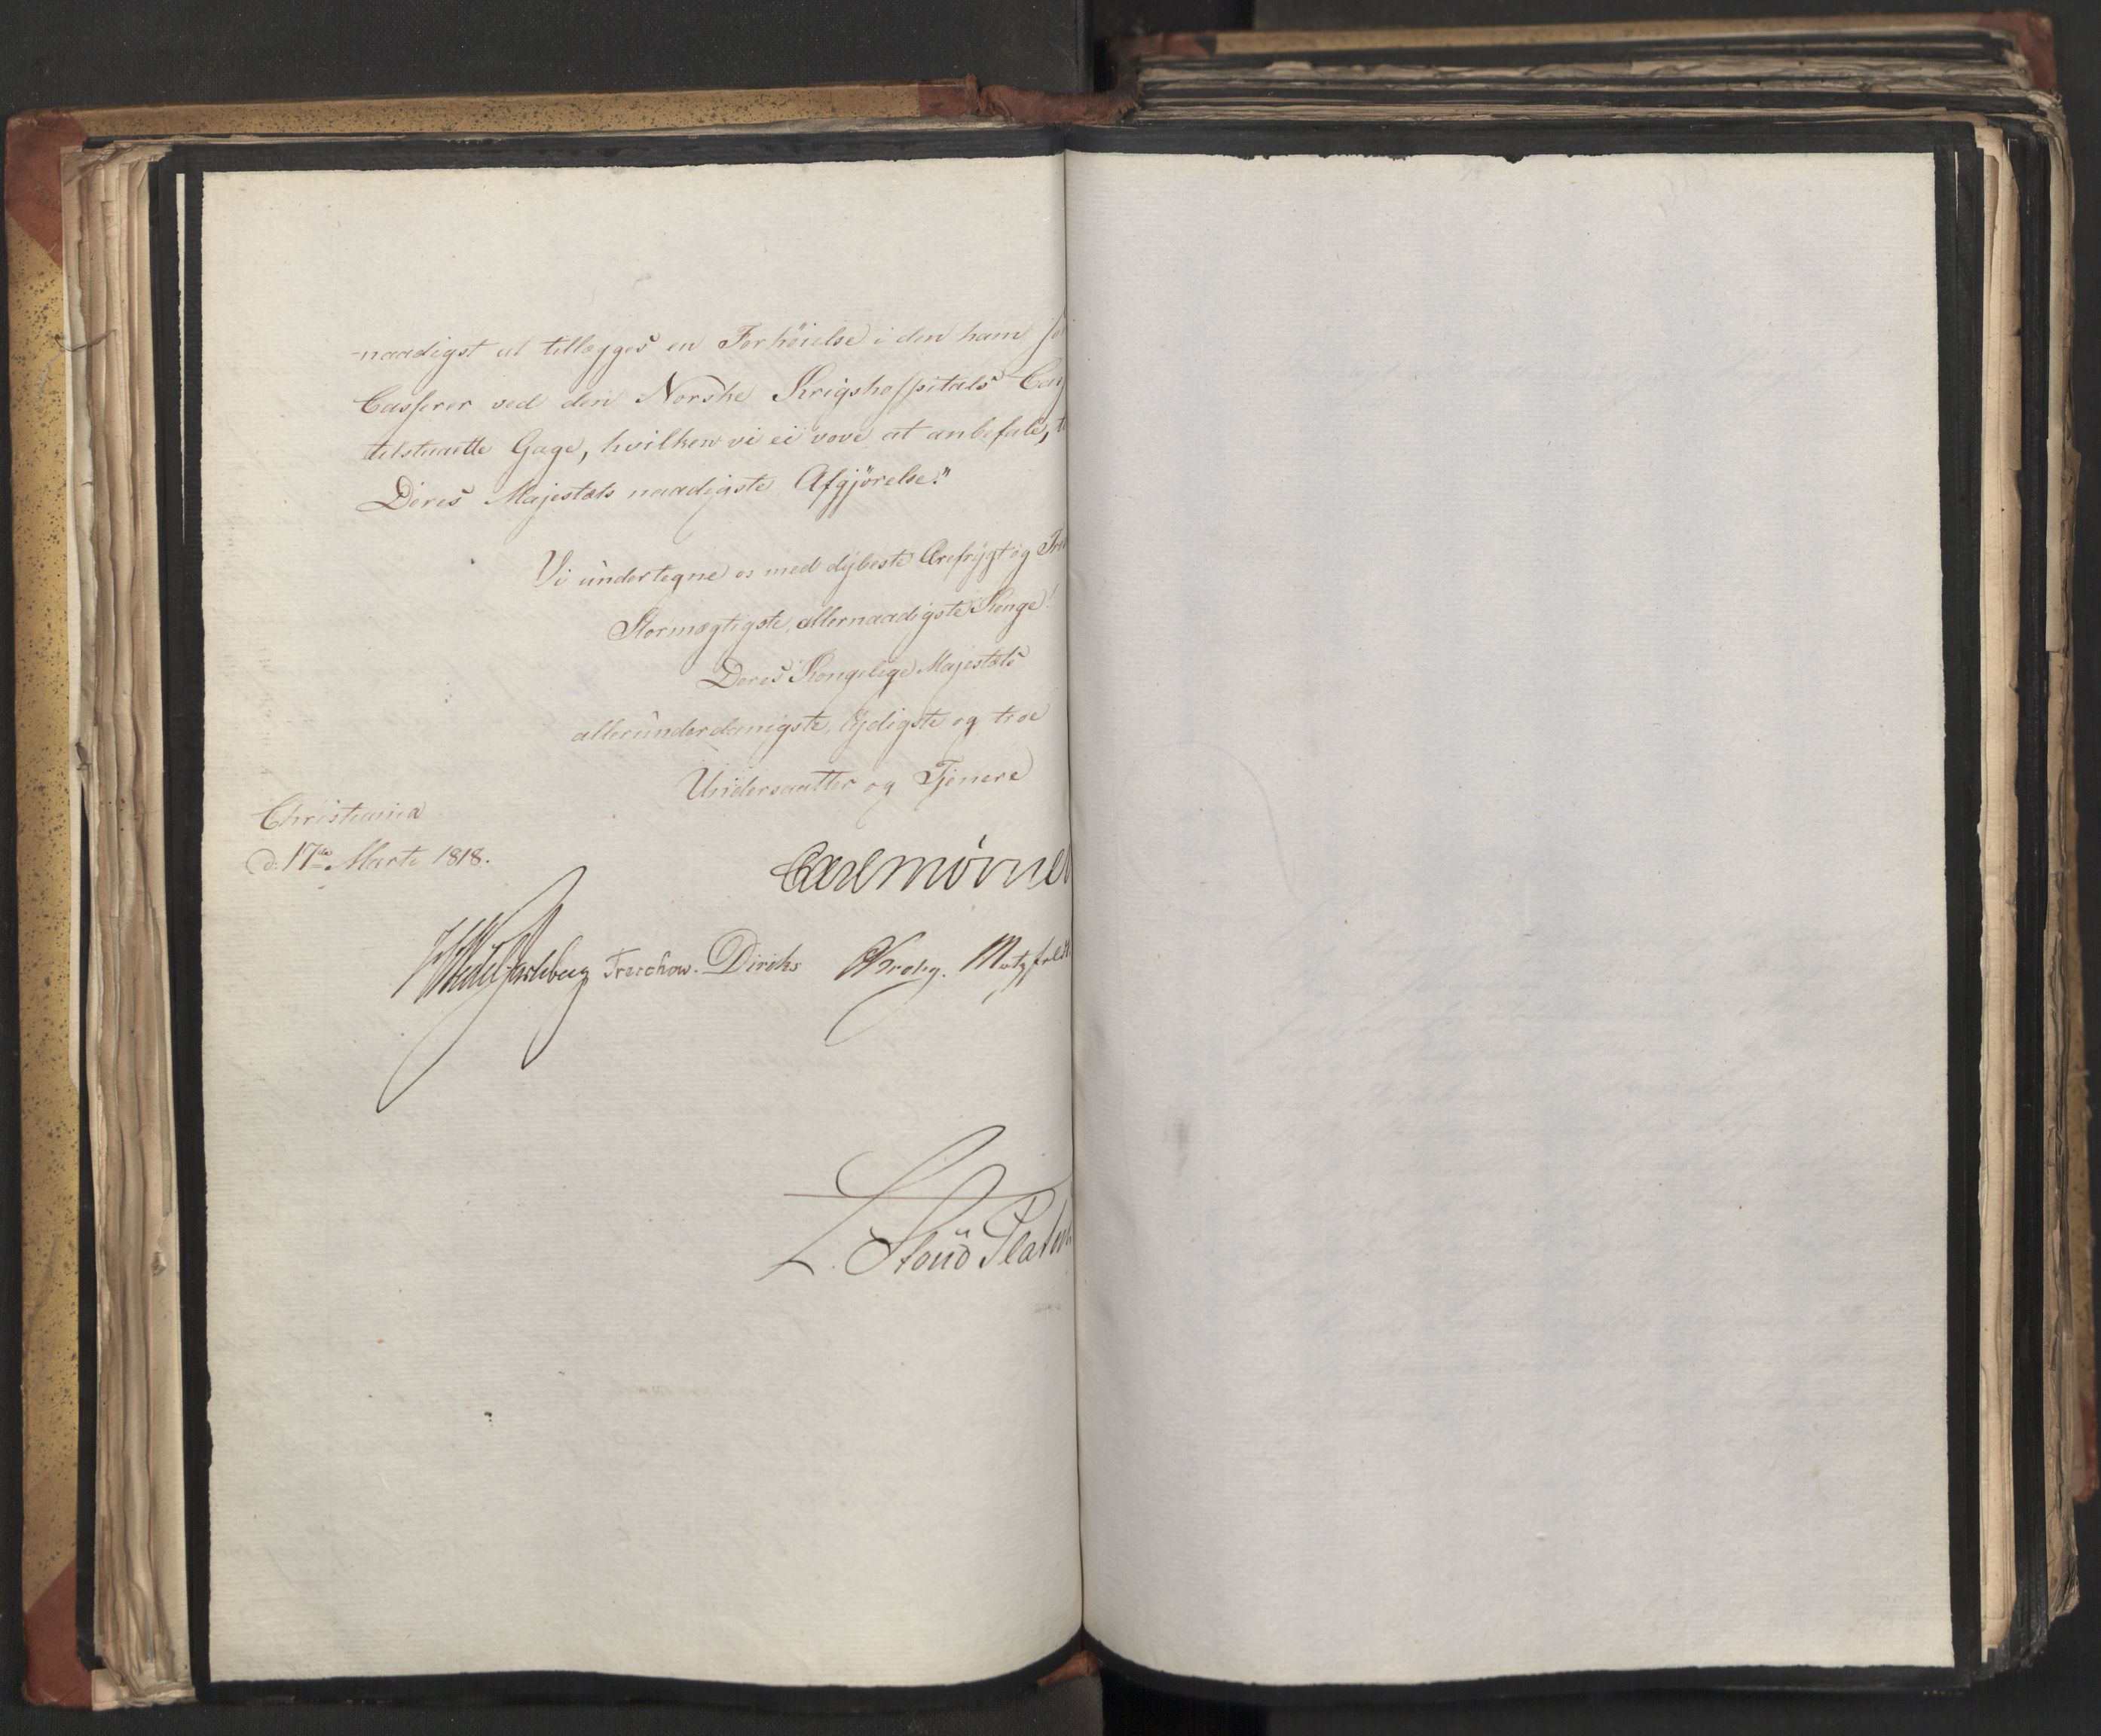 naadigst at tillægges en Forhöielse i den ham
Casserer ved den Norske Krigshospitals
tilstaaette Gage, hvilken vi ei vove at anbefale,
Deres Majestæts naadigste Afgjörelse."
Vi undertegne os med dybeste Ærefrygt og
Stormægtigste, allernaadigste Konge!
Deres Kongelige Majestæts
allerunderdanigste, lydigste og troe
Undersaatter og Tjenere
Christiania
d. 17de Marts 1818.
Carl Mörner
Wedel Jarlsberg Treschow. Diriks Krohg. Motzfeldt
L. Stoud Platou